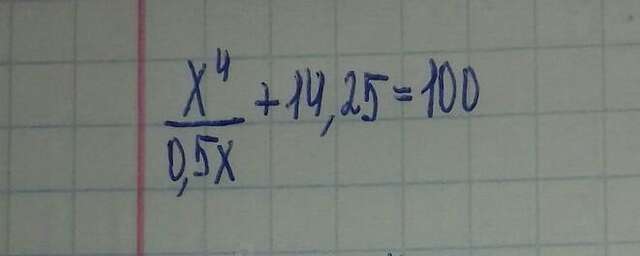 x⁴/0,5x + 14,25 = 100